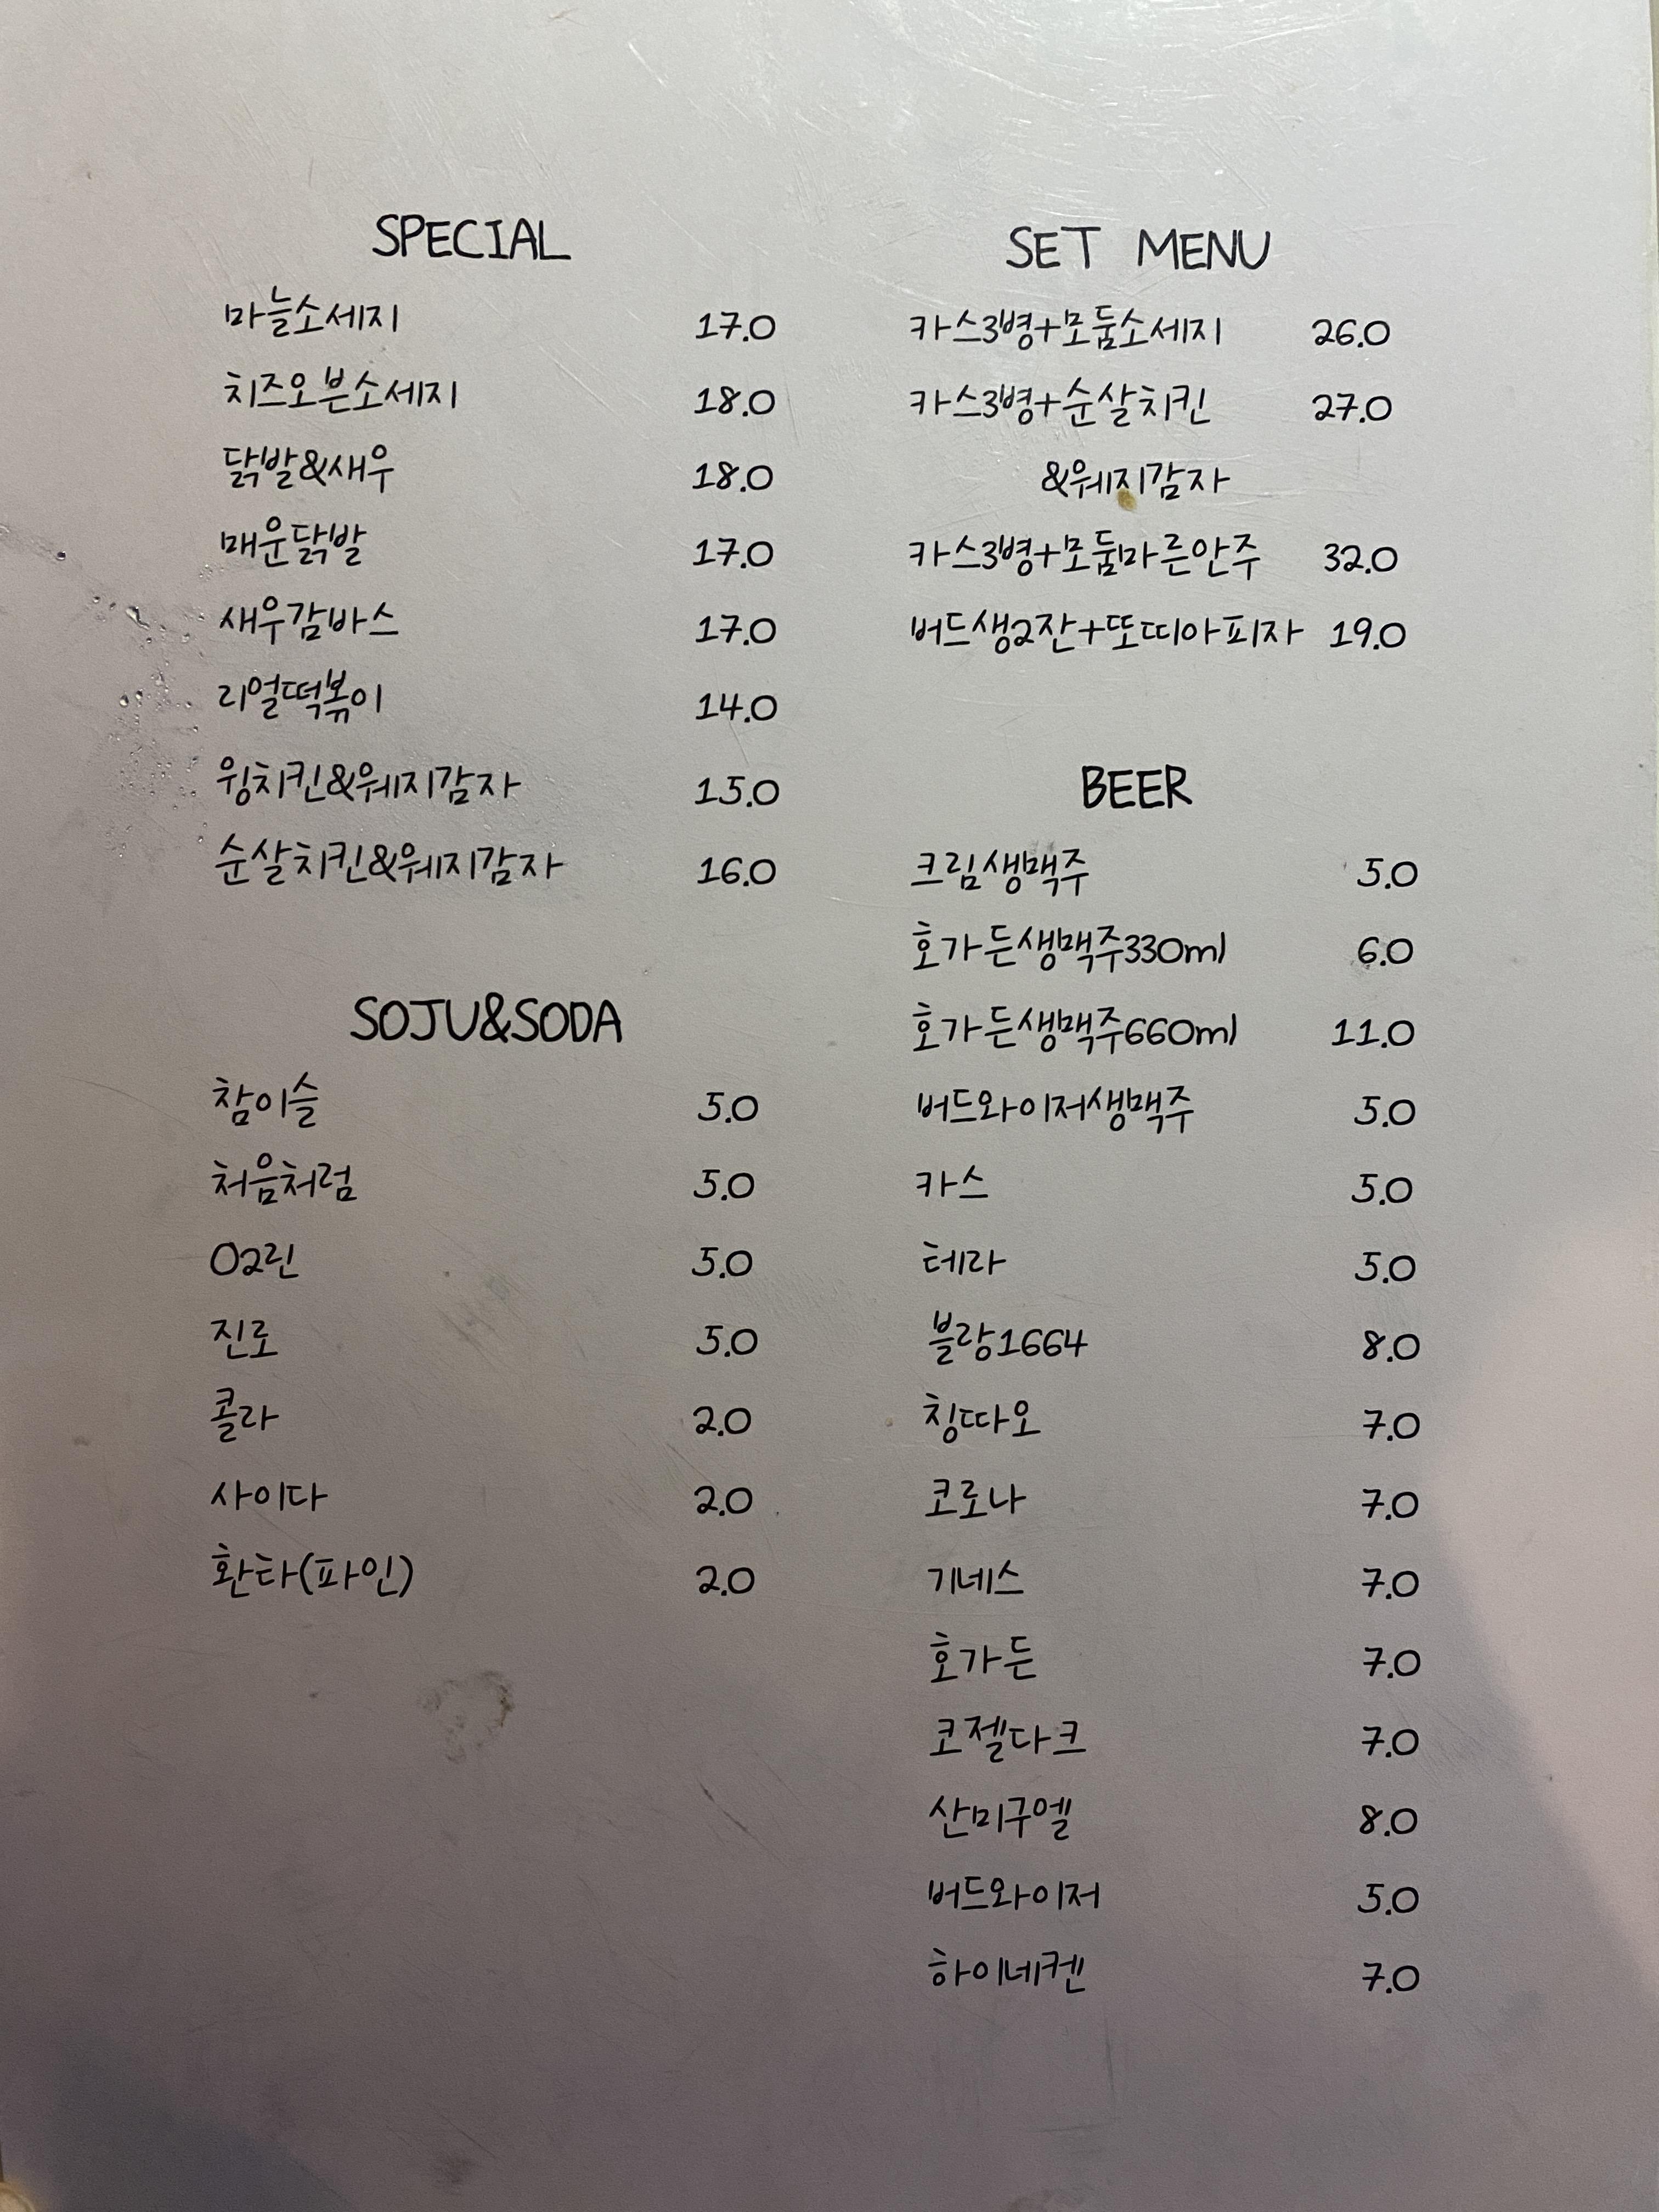 SPECIAL
마늘소세지 17.0
치즈오븐소세지 18.0
닭발&새우 18.0
매운닭발 17.0
새우감바스 17.0
리얼떡볶이 14.0
윙치킨&웨지감자 15.0
순살치킨&웨지감자 16.0
SOJU&SODA
참이슬 5.0
처음처럼 5.0
O2린 5.0
진로 5.0
콜라 2.0
사이다 2.0
환타(파인) 2.0
SET MENU
카스3병+모둠소세지 26.0
카스3병+순살치킨 27.0
&웨지감자
카스3병+모둠마른안주 32.0
버드생2잔+또띠아피자 19.0
BEER
크림생맥주 5.0
호가든생맥주330ml 6.0
호가든생맥주660ml 11.0
버드와이저생맥주 5.0
카스 5.0
테라 5.0
블랑1664 8.0
칭따오 7.0
코로나 7.0
기네스 7.0
호가든 7.0
코젤다크 7.0
산미구엘 8.0
버드와이저 5.0
하이네켄 7.0